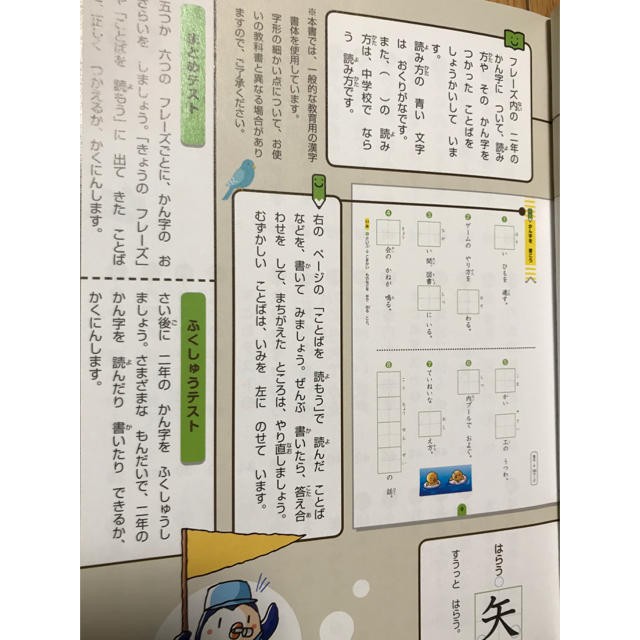 フレーズ内の 二年の
かん字に ついて、読み
方や その かん字を
つかった ことばを
しょうかいして いま
す。
読み方の 青い 文字
は おくりがなです。
また、( )の 読み
方は、中学校で なら
う 読み方です。
※本書では、一般的な教育用の漢字
書体を使用しています。
字形の細かい点について、お使
いの教科書と異なる場合があり
ますので、ご了承ください。
かん字を 書こう
1
いひもを 通す。
2
ゲームの やり方を
わる。
3
い間、図書
にいる。
4
会の かねが 鳴る。
5
かい
工の うつわ。
6
内プールで およぐ。
7
ていねいな
え方。
8
の 話。
右の ページの 「ことばを 読もう」で 読んだ ことば
などを、書いて みましょう。ぜんぶ 書いたら、答え合
わせを して、まちがえた ところは、やり直しましょう。
むずかしい ことばは、いみを 左に のせて います。
まとめテスト
五つか 六つの フレーズごとに、かん字の お
さらいを しましょう。「きょうの フレーズ」
や「ことばを 読もう」に 出て きた ことば
を 正しく つかえるか、かくにんします。
ふくしゅうテスト
さい後に 二年の かん字を ふくしゅうし
ましょう。さまざまな もんだいで、二年の
かん字を 読んだり 書いたり できるか、
かくにんします。
はらう
すうっと はらう。
矢